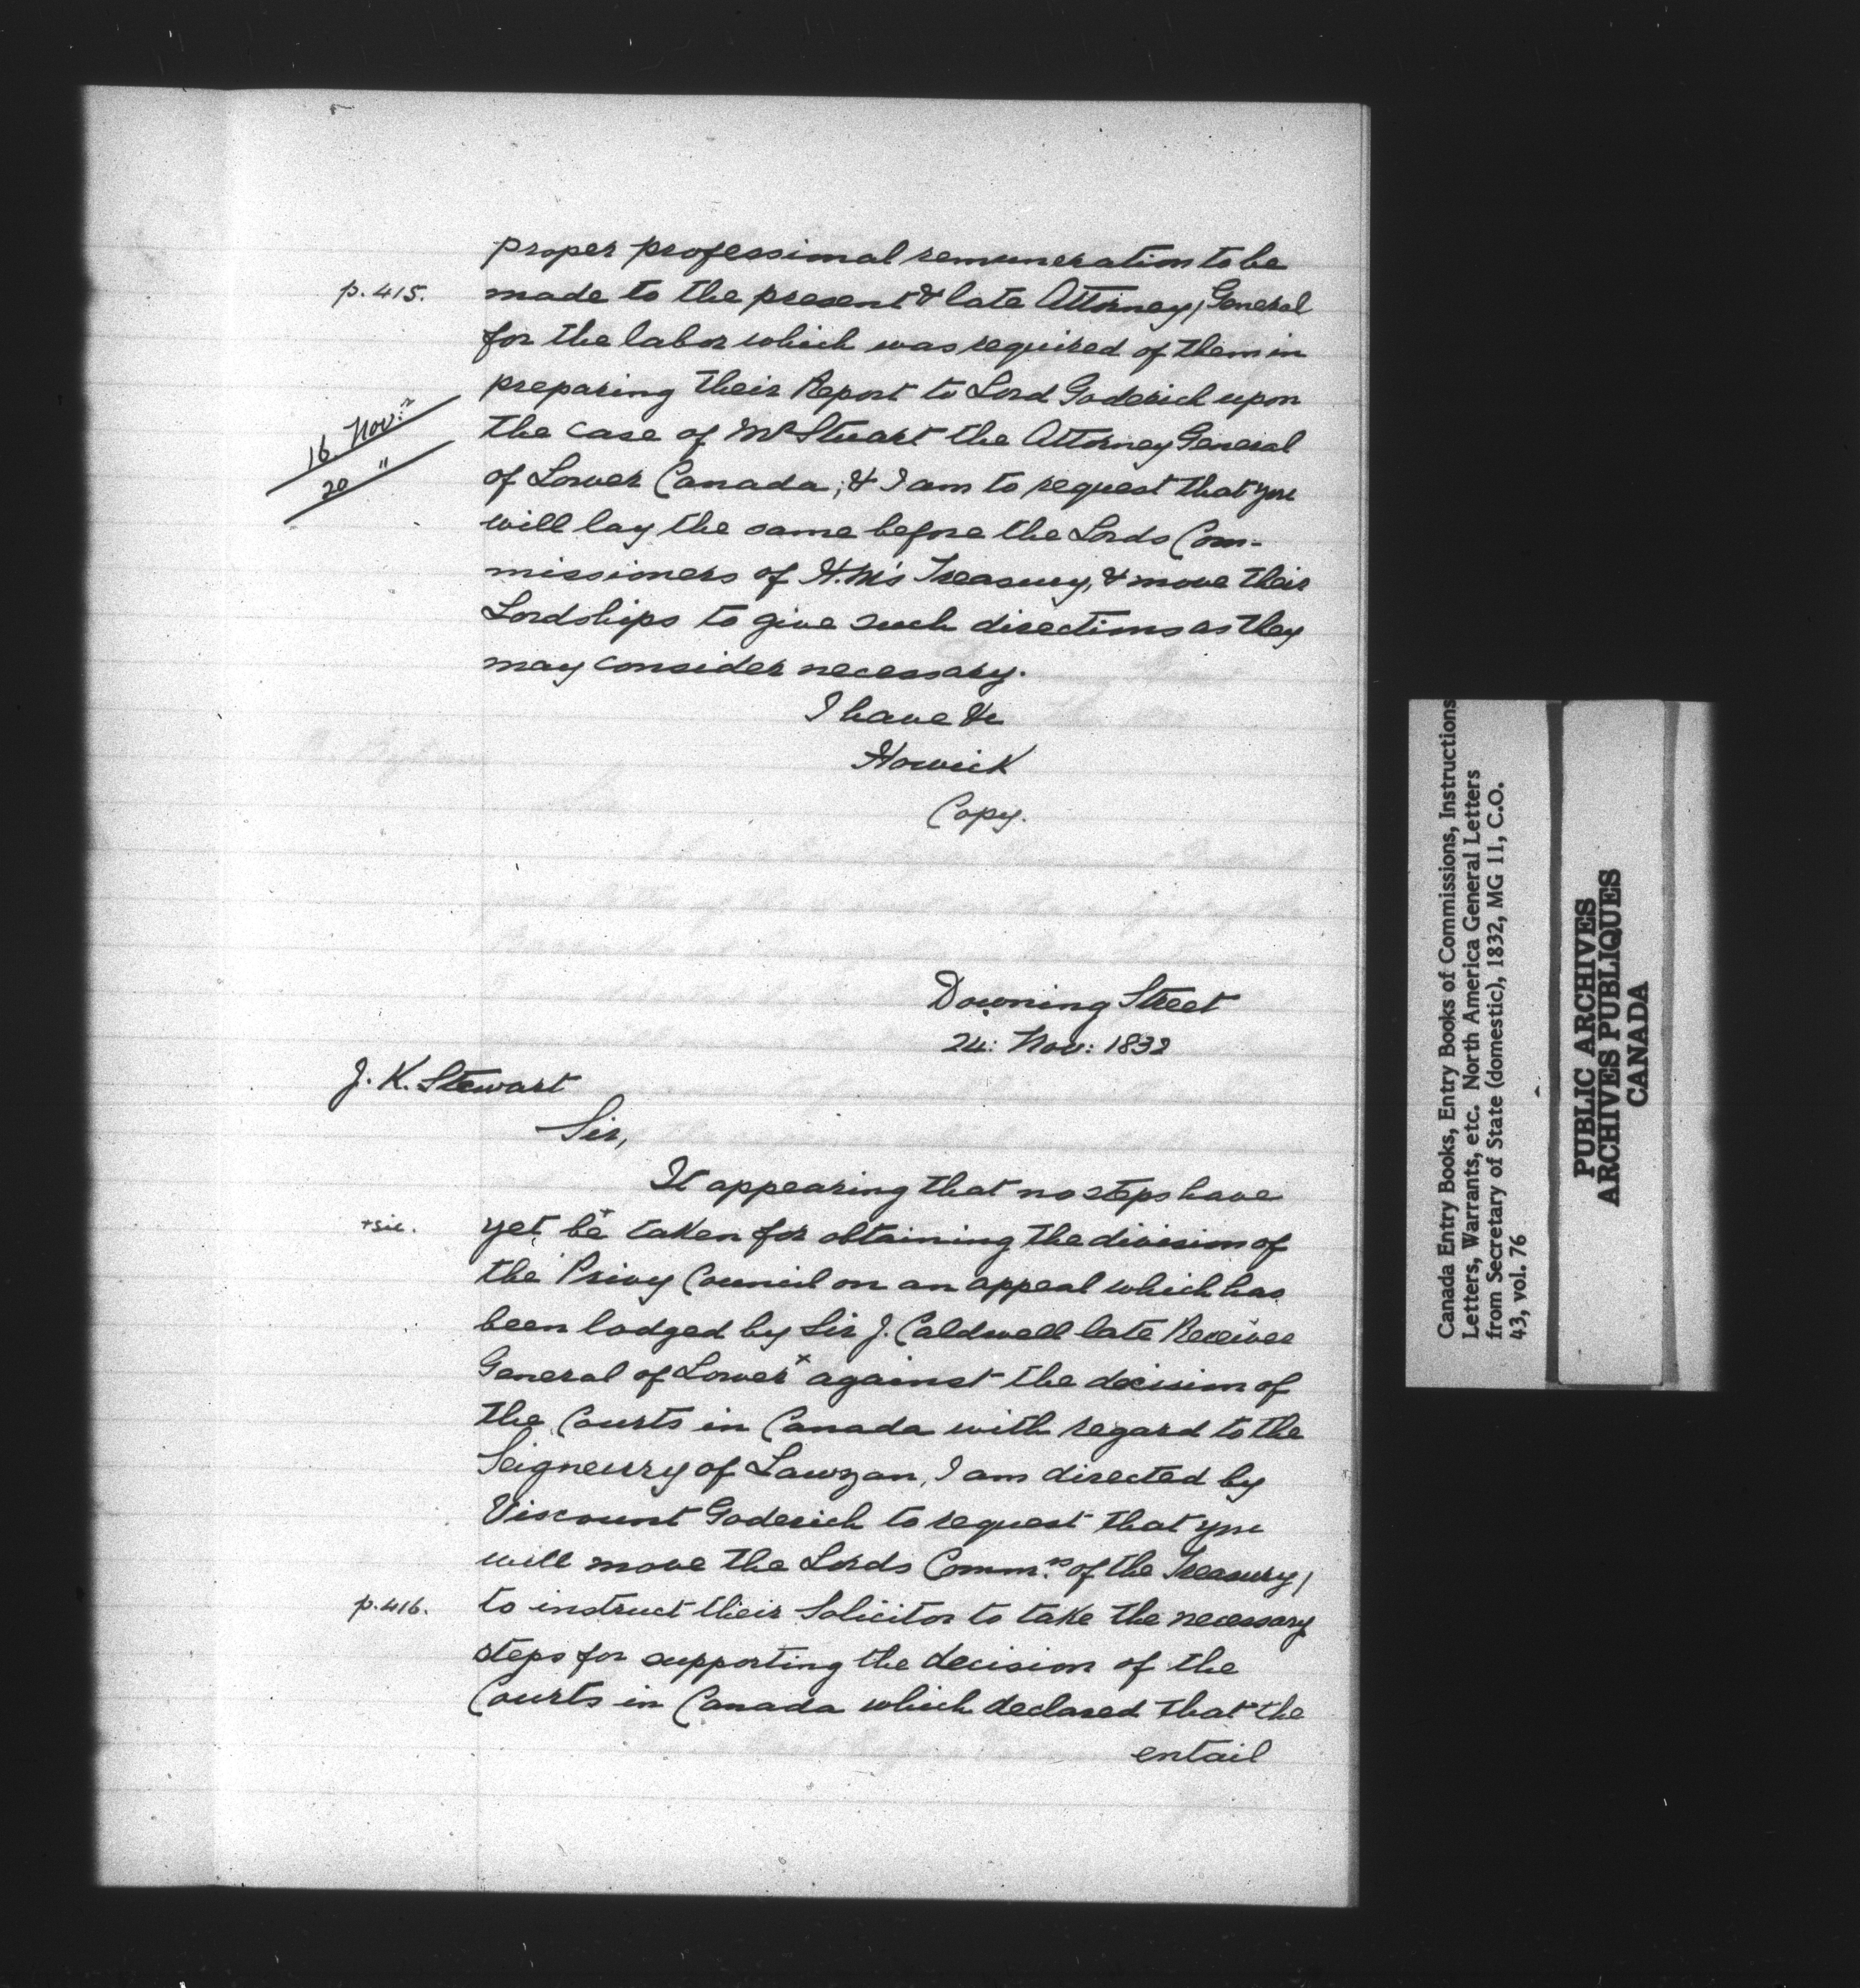 proper professional remuneration to be
p. 415. made to the present & late Attorney/General
for the labor which was required of them in
preparing their Report to Lord Goderich upon
16 Nov:"
20 "
the case of Mr Stuart the Attorney General
of Lower Canada; & I am to request that you
will lay the same before the Lords Com-
missioners of H.M's Treasury, & move their
Lordships to give such directions as they
may consider necessary.
I have &c
Howick
Copy.
Downing Street
24: Nov: 1832
J. K. Stewart
Sir,
It appearing that no steps have
+sic. yet be+ taken for obtaining the division of
the Privy Council on an appeal which has
been lodged by Sir J. Caldwell late Receiver
General of Lower x against the decision of
the Courts in Canada with regard to the
Seigneury of Lawzan, I am directed by
Viscount Goderich to request that you
will move the Lords Comm:rs of the Treasury/
p. 416. to instruct their Solicitor to take the necessary
steps for supporting the decision of the
Courts in Canada which declared that the
entail
Canada Entry Books, Entry Books of Commissions, Instructions
Letters, Warrants, etc. North America General Letters
from Secretary of State (domestic), 1832, MG 11, C.O.
43, vol. 76
PUBLIC ARCHIVES
ARCHIVES PUBLIQUES
CANADA